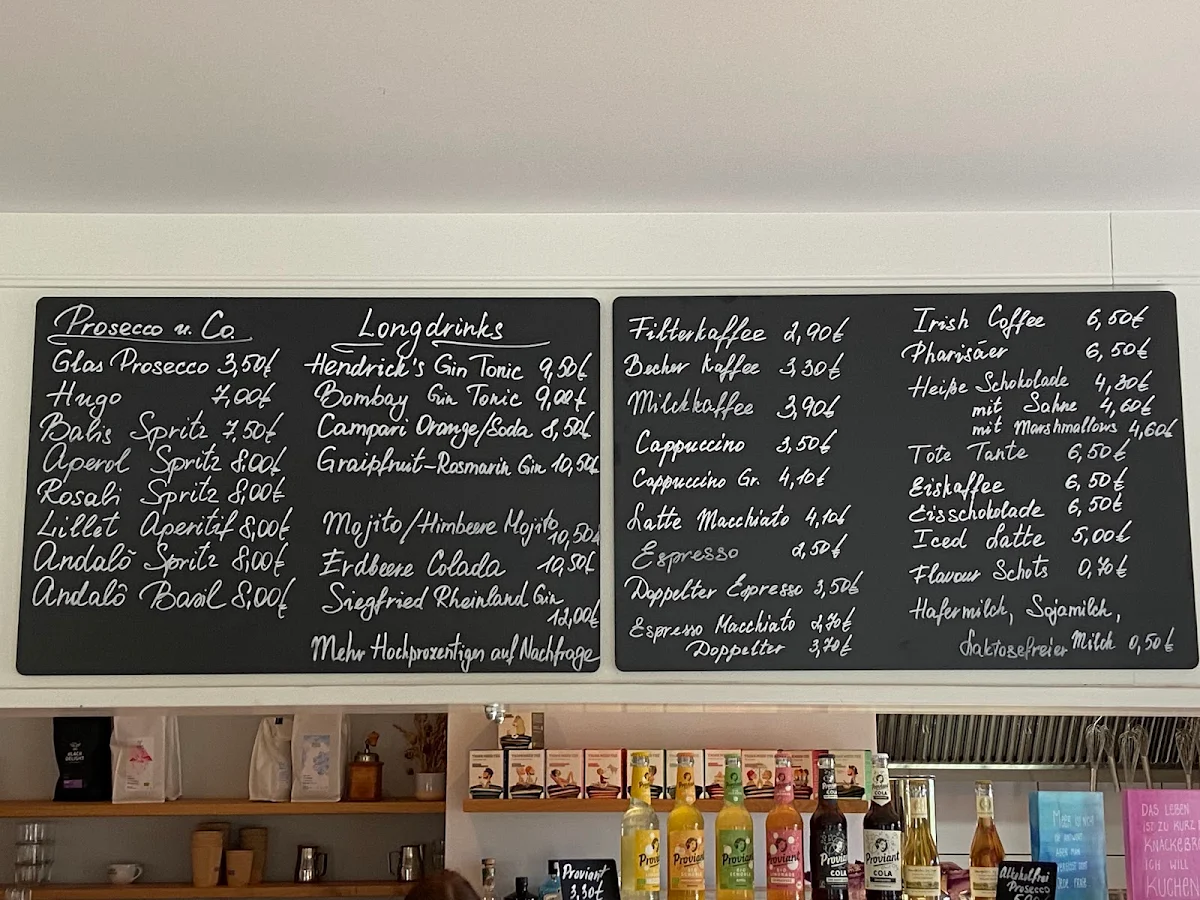 Prosecco u. Co.
Glas Prosecco 3,50€
Hugo 7,00€
Balis Spritz 7,50€
Aperol Spritz 8,00€
Rosali Spritz 8,00€
Lillet Aperitif 8,00€
Andalö Spritz 8,00€
Andalö Basil 8,00€
Longdrinks
Hendrick's Gin Tonic 9,50€
Bombay Gin Tonic 9,00€
Campari Orange/Soda 8,50€
Graipfruit-Rosmarin Gin 10,50€
Mojito/Himbeere Mojito
10,50€
Erdbeere Colada 10,50€
Siegfried Rheinland Gin
12,00€
Mehr Hochprozentiges auf Nachfrage
Filterkaffee 2,90€
Becher Kaffee 3,30€
Milchkaffee 3,90€
Cappuccino 3,50€
Cappuccino Gr. 4,10€
Latte Macchiato 4,10€
Espresso 2,50€
Doppelter Espresso 3,50€
Espresso Macchiato 2,70€
Doppelter 3,70€
Irish Coffee 6,50€
Pharisäer 6,50€
Heiße Schokolade 4,30€
mit Sahne 4,60€
mit Marshmallows 4,60€
Tote Tante 6,50€
Eiskaffee 6,50€
Eisschokolade 6,50€
Iced Latte 5,00€
Flavour Schots 0,70€
Hafermilch, Sojamilch,
Laktosefreier Milch 0,50€
BLACK
DELIGHT
Proviant
3,30€
Proviant
Proviant
Proviant
Proviant
Proviant
COLA
Proviant
COLA
Alkoholfrei
Prosecco
DAS LEBEN
IST ZU KURZ
KNÄCKEBR
ICH WILL
KUCHEN